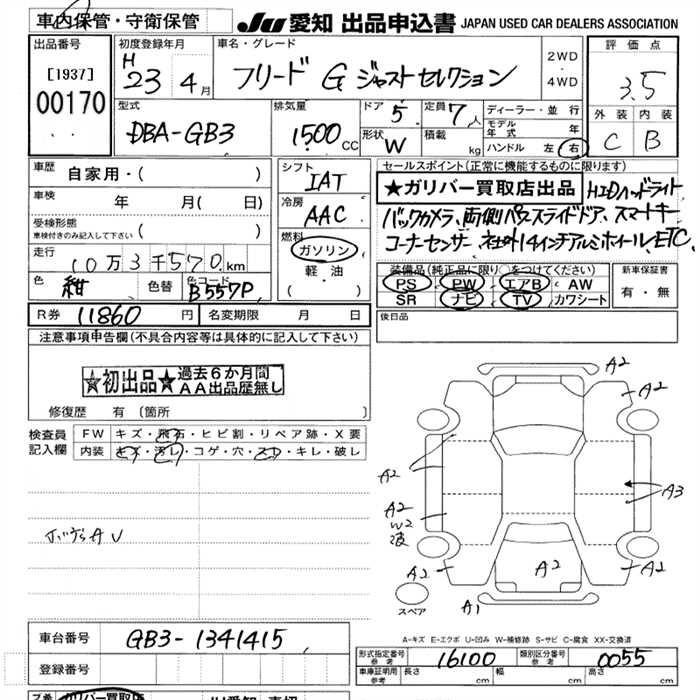 車内保管・守衛保管
JU 愛知 出品申込書 JAPAN USED CAR DEALERS ASSOCIATION
出品番号
[1937]
00170
初度登録年月
H 23 4月
車名・グレード
フリード G ジャストセレクション
2WD
・
4WD
評価点
3.5
外装 内装
C B
型式
DBA-GB3
排気量
1500 CC
ドア 5
定員 7人
形状 W
積載 kg
ディーラー・並行
モデル年式 年
ハンドル 左 右
車歴
自家用・( )
車検
年 月(日)
受検形態
車検付きのみ記入して下さい ( )
走行
10万3千570km
色 紺 色替 色コード B557P
シフト
IAT
冷房
AAC
燃料
ガソリン
・
軽油
( )
セールスポイント(正常に機能するものに限ります)
★ガリバー買取店出品 HIDヘッドライト
バックカメラ、両側パワースライドドア、スマートキー
コーナーセンサー 社外14インチアルミホイール ETC
装備品(純正品に限り○をつけてください)
PS PW エアB AW
SR ナビ TV カワシート
新車保証書
有・無
R券 11860円 名変期限 月 日
後日品
注意事項申告欄(不具合内容等は具体的に記入して下さい)
★初出品★ 過去6か月間
AA出品歴無し
修復歴 有 〔箇所 〕
検査員
記入欄
FW キズ・飛石・ヒビ割・リペア跡・X要
内装 キズ・汚レ・コゲ・穴・スレ・キレ・破レ
ボデーAU
A2
A2
A2
A2
W2
波
A3
A2
A2
A2
A1
スペア
A-キズ E-エクボ U-凹み W-補修跡 S-サビ C-腐食 XX-交換済
車台番号 GB3-1341415
登録番号
形式指定番号
参考
16100
類別区分番号
参考
0055
車庫証明用
参考
長さ cm 幅 cm 高さ cm
ガリバー買取店
JU愛知